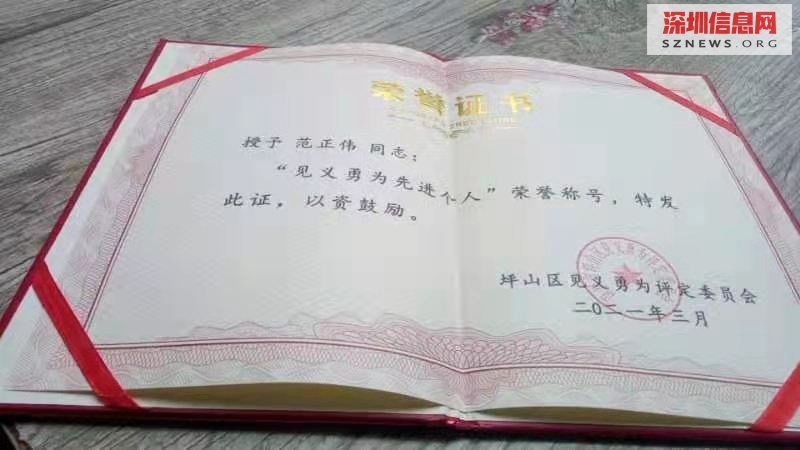 深圳信息网
SZNEWS.ORG
荣誉证书
授予 范正伟 同志：
“见义勇为先进个人”荣誉称号，特发
此证，以资鼓励。
坪山区见义勇为评定委员会
二〇二一年三月